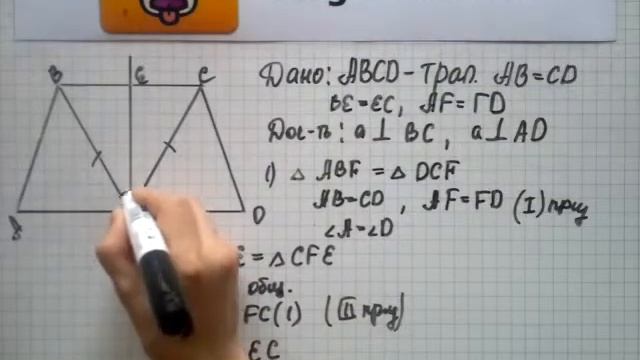 B E C
Дано: ABCD - трап. AB = CD
BE = EC, AF = FD
Док-ть: a ⊥ BC, a ⊥ AD
1) △ ABF = △ DCF
AB = CD, AF = FD (I) призн
∠A = ∠D
A D
E = △ CFE
общ.
FC (1) (II призн)
EC